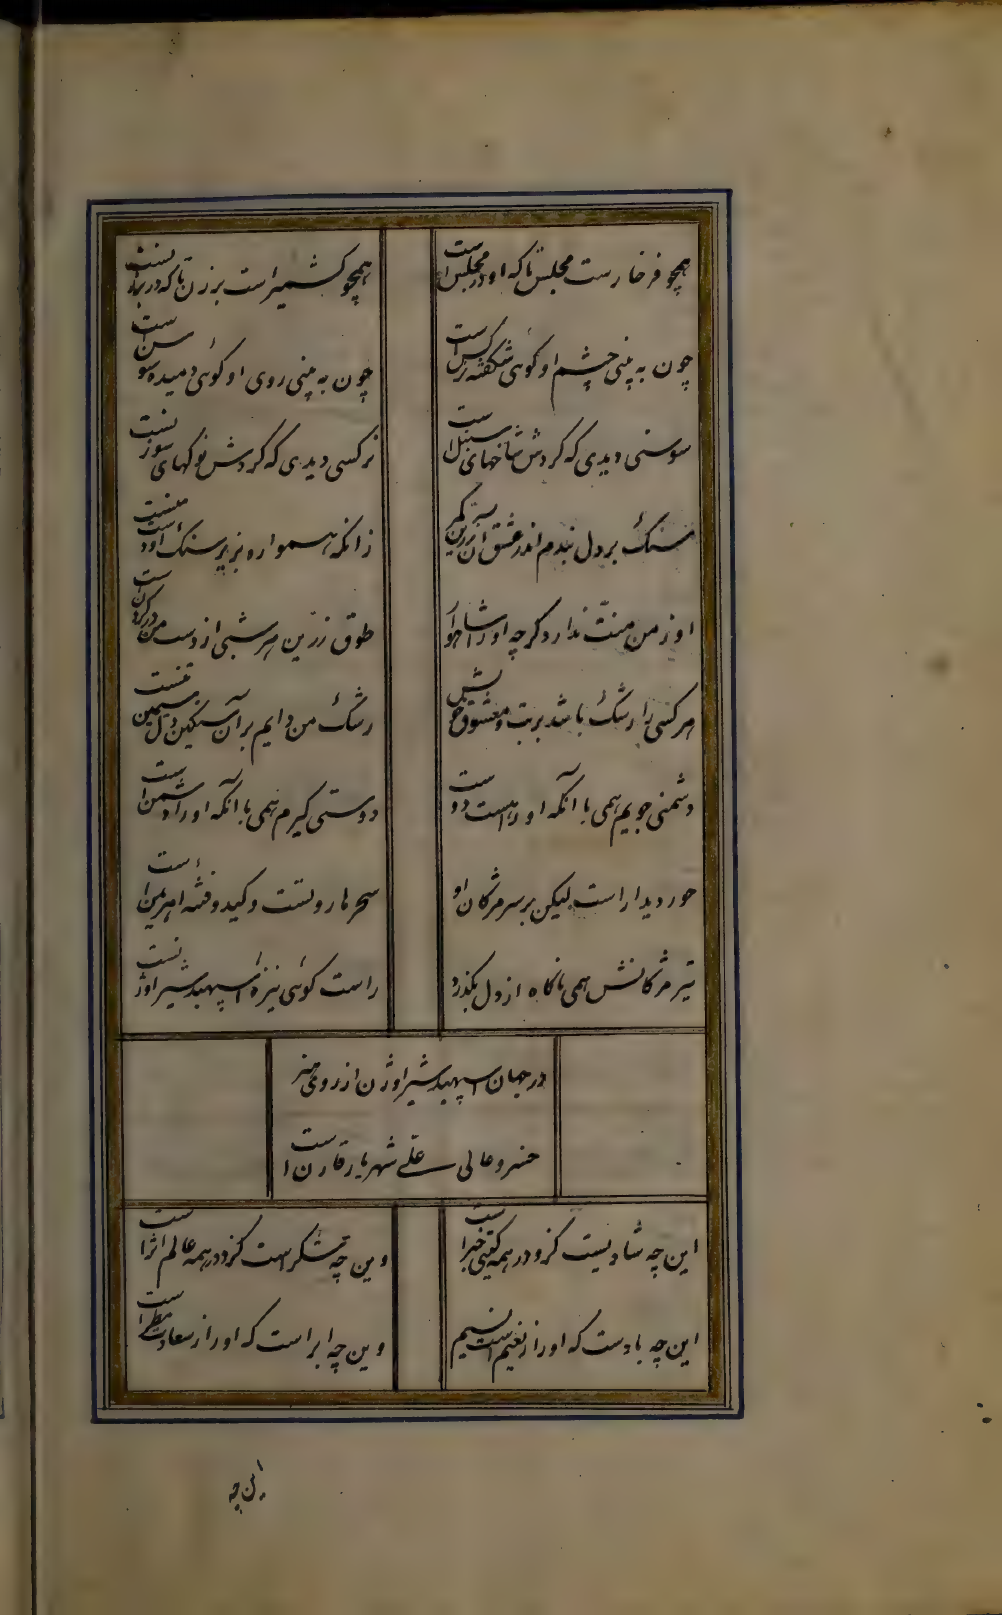 همچو فرخارست مجلس تا که او در مجلس است
همچو کشمیر است برزن تا که در برزنست
چون به بینی چشم او کوئی شکفته نرکس است
چون به بینی روی او کوئی دمیده سوسن است
سوسنی دیدی که کردش شاخهای سنبل است
نرکسی دیدی که کردش نوکهای سوزنست
سنک بر دل بندم اندر عشق آن زرین کمر
زانکه همواره بزیر سنک
او ز من منت ندارد کرچه او را
طوق زرین هر شبی از دست من در کردن است
هر کسی را رشک باشد بر بت و معشوق خویش
رشک من دایم بر آن سنکین دل سیمین تنست
دشمنی جویم همی با آنکه او را هست دوست
دوستی کیرم همی با آنکه او را دشمن است
حور دیدار است لیکن بر سر مژکان او
سحر هاروتست و کید و فتنه اهریمن است
تیر مژکانش همی ناکاه از دل بکذرد
راست کوئی نیزهٔ اسپهبد شیر اوژنست
در جهان اسپهبد شیر اوژن از روی هنر
خسرو عالی علی شهریار قارن است
این چه شادیست کزو در همه کیتی خبر است
وین چه تشکر است کزو در همه عالم اثر است
این چه بادست که او را ز نعیم است نسیم
وین چه ابر است که او را ز سعادت مطر است
این چه